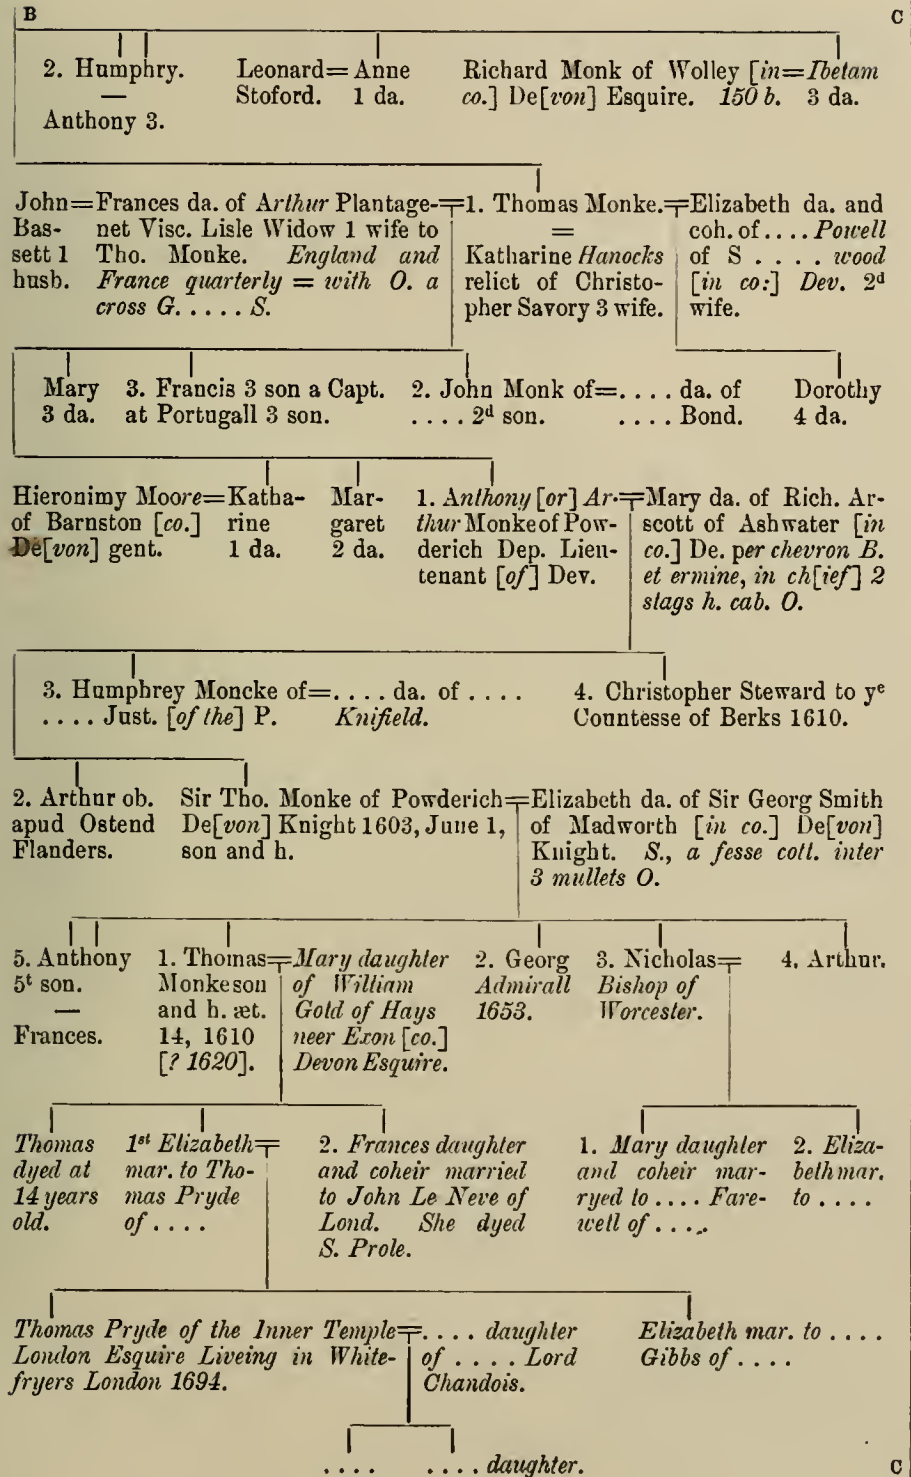 B C
2. Humphry.
—
Anthony 3.
Leonard= Anne
Stoford. 1 da.
Richard Monk of Wolley [in=Ibetam
co.] De[von] Esquire. 150 b. 3 da.
John=Frances da. of Arthur Plantage-
Bas- net Visc. Lisle Widow 1 wife to
sett 1 Tho. Monke. England and
husb. France quarterly = with O. a
cross G. . . . . S.
1. Thomas Monke.
=
Katharine Hanocks
relict of Christo-
pher Savory 3 wife.
Elizabeth da. and
coh. of . . . . Powell
of S . . . . wood
[in co:] Dev. 2d
wife.
Mary
3 da.
3. Francis 3 son a Capt.
at Portugall 3 son.
2. John Monk of=. . . . da. of
. . . . 2d son. . . . . Bond.
Dorothy
4 da.
Hieronimy Moore=Katha-
of Barnston [co.] rine
De[von] gent. 1 da.
Mar-
garet
2 da.
1. Anthony [or] Ar-
thur Monke of Pow-
derich Dep. Lieu-
tenant [of] Dev.
Mary da. of Rich. Ar-
scott of Ashwater [in
co.] De. per chevron B.
et ermine, in ch[ief] 2
stags h. cab. O.
3. Humphrey Moncke of=. . . . da. of . . . .
. . . . Just. [of the] P. Knifield.
4. Christopher Steward to ye
Countesse of Berks 1610.
2. Arthur ob.
apud Ostend
Flanders.
Sir Tho. Monke of Powderich
De[von] Knight 1603, June 1,
son and h.
Elizabeth da. of Sir Georg Smith
of Madworth [in co.] De[von]
Knight. S., a fesse cott. inter
3 mullets O.
5. Anthony
5t son.
—
Frances.
1. Thomas
Monke son
and h. æt.
14, 1610
[? 1620].
Mary daughter
of William
Gold of Hays
neer Exon [co.]
Devon Esquire.
2. Georg
Admirall
1653.
3. Nicholas
Bishop of
Worcester.
4. Arthur.
Thomas
dyed at
14 years
old.
1st Elizabeth
mar. to Tho-
mas Pryde
of . . . .
2. Frances daughter
and coheir married
to John Le Neve of
Lond. She dyed
S. Prole.
1. Mary daughter
and coheir mar-
ryed to . . . . Fare-
well of . . . .
2. Eliza-
beth mar.
to . . . .
Thomas Pryde of the Inner Temple
London Esquire Liveing in White-
fryers London 1694.
. . . . daughter
of . . . . Lord
Chandois.
Elizabeth mar. to . . . .
Gibbs of . . . .
. . . . . . . . daughter.
C